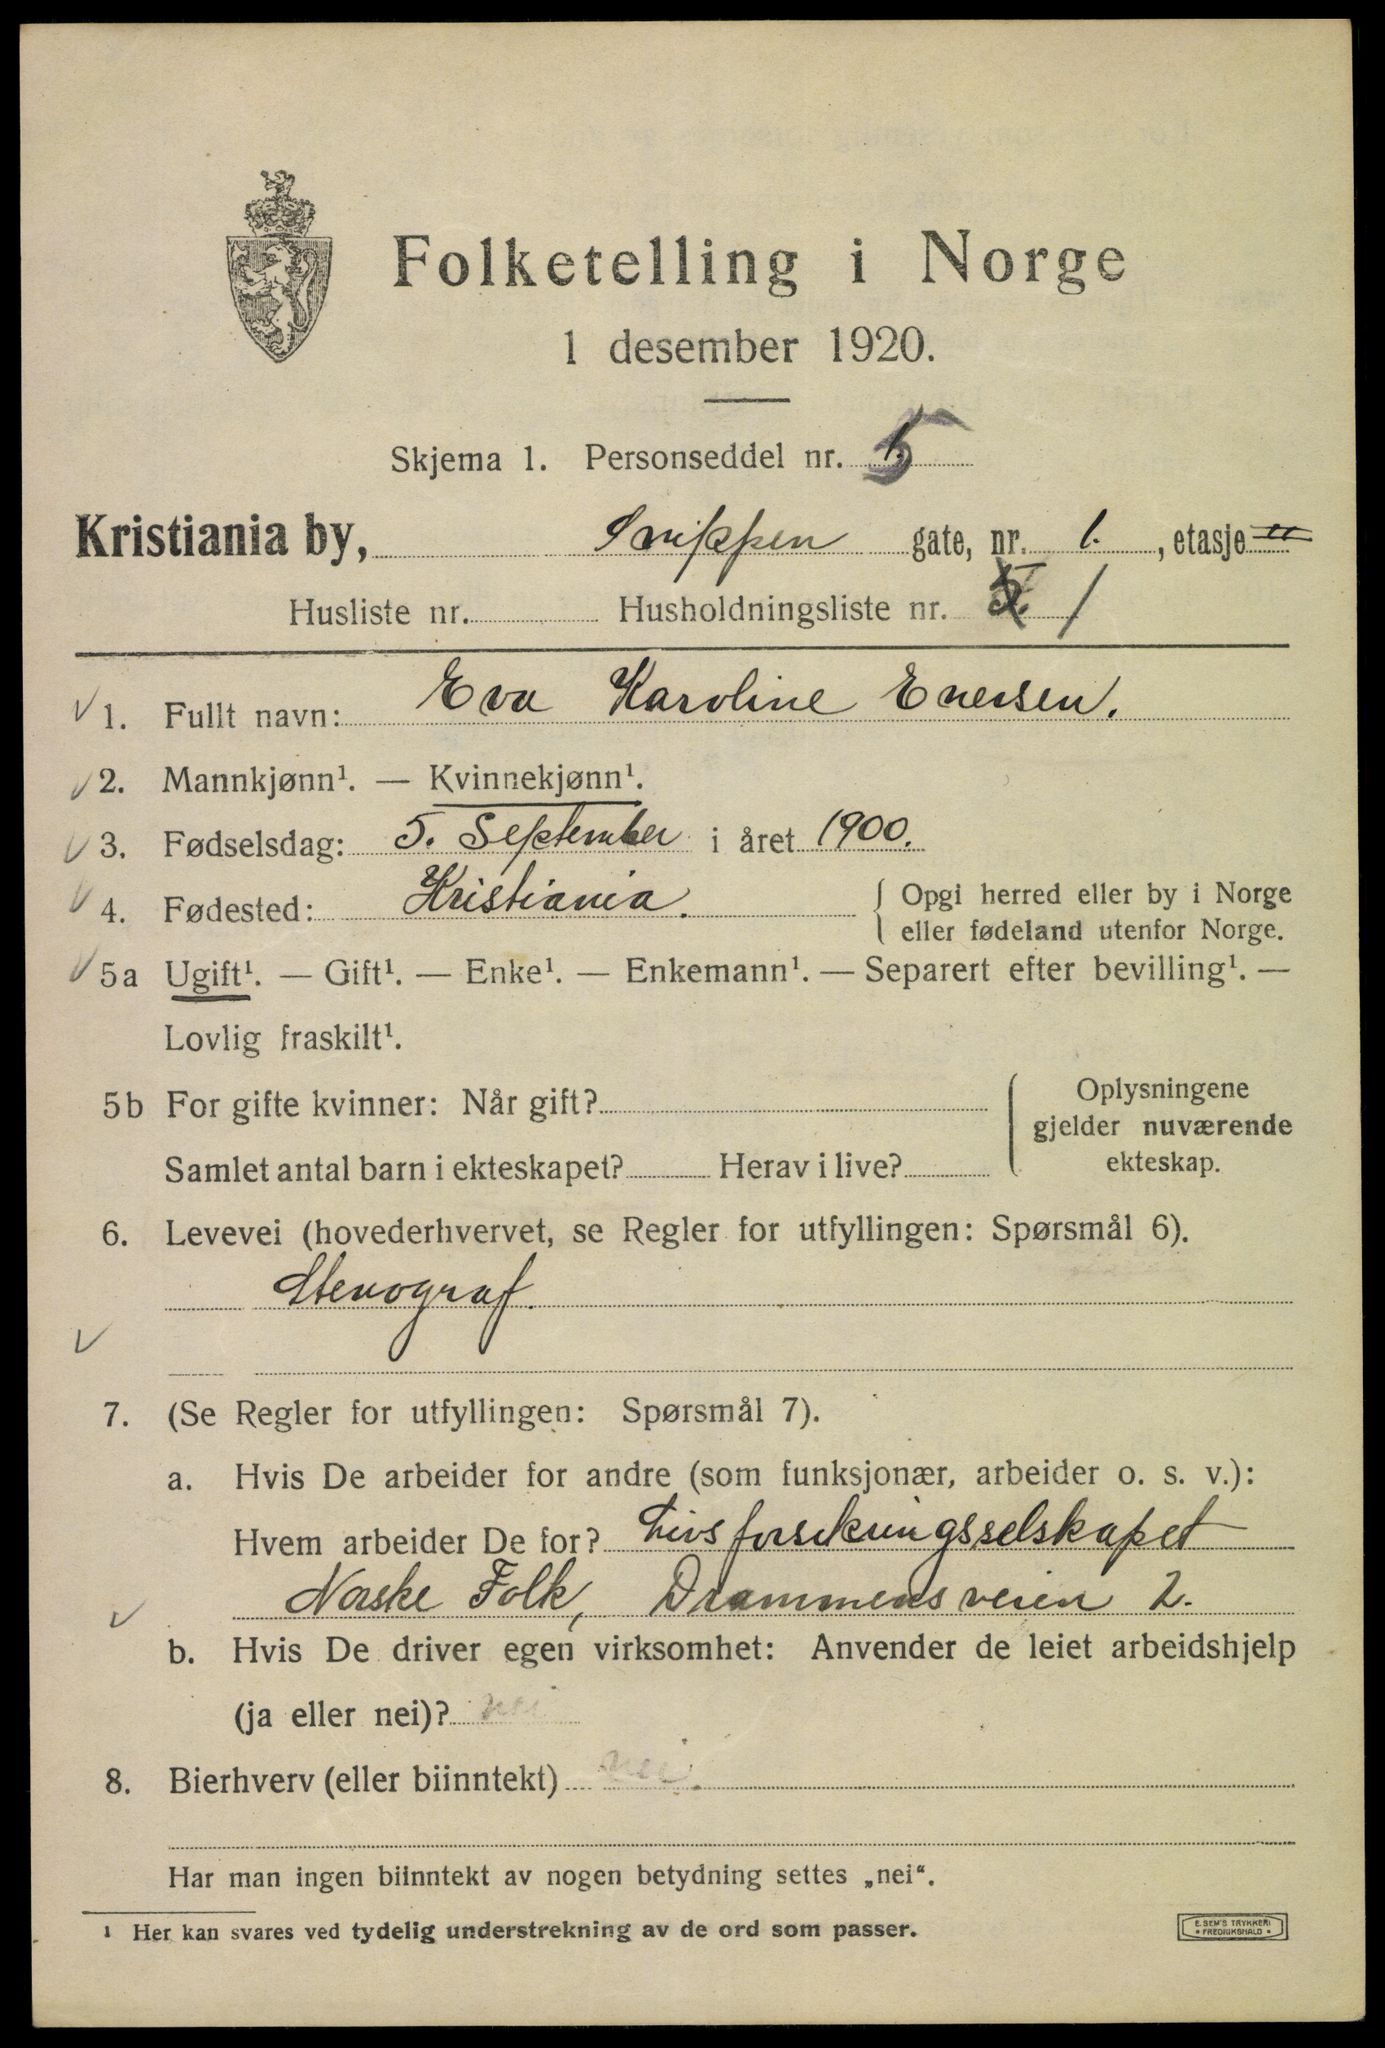 Folketelling i Norge
1 desember 1920.
Skjema 1. Personseddel nr. 5
Kristiania by, Snippen gate, nr. 1. , etasje
Husliste nr. Husholdningsliste nr. 1
1. Fullt navn: Eva Karoline Enersen.
2. Mannkjønn¹. — Kvinnekjønn¹.
3. Fødselsdag: 5. September i året 1900.
4. Fødested: Kristiania. { Opgi herred eller by i Norge
eller fødeland utenfor Norge.
5a Ugift¹. — Gift¹. — Enke¹. — Enkemann¹. — Separert efter bevilling¹. —
Lovlig fraskilt¹.
5b For gifte kvinner: Når gift? Oplysningene
gjelder nuværende
Samlet antal barn i ekteskapet? Herav i live? ekteskap.
6. Levevei (hovederhvervet, se Regler for utfyllingen: Spørsmål 6).
Stenograf.
7. (Se Regler for utfyllingen: Spørsmål 7).
a. Hvis De arbeider for andre (som funksjonær, arbeider o. s. v.):
Hvem arbeider De for? Livsforsikringsselskapet
Norske Folk, Drammensveien 2.
b. Hvis De driver egen virksomhet: Anvender de leiet arbeidshjelp
(ja eller nei)? nei
8. Bierhverv (eller biinntekt) nei.
Har man ingen biinntekt av nogen betydning settes „nei“.
¹ Her kan svares ved tydelig understrekning av de ord som passer.
E. SEM'S TRYKKERI
* FREDRIKSHALD *